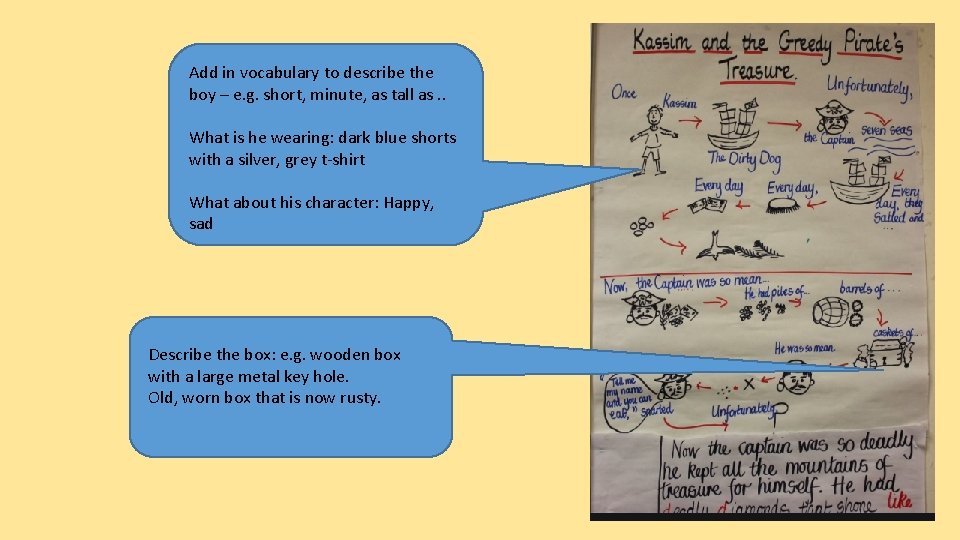 Add in vocabulary to describe the
boy – e.g. short, minute, as tall as . .
What is he wearing: dark blue shorts
with a silver, grey t-shirt
What about his character: Happy,
sad
Describe the box: e.g. wooden box
with a large metal key hole.
Old, worn box that is now rusty.
Kassim and the Greedy Pirate's
Treasure.
Once
Kassim
Unfortunately,
the Captain
seven seas
The Dirty Dog
Every day
Every day,
Every
day, they
sailed and
...
Now, the Captain was so mean...
He had piles of...
barrels of ...
caskets of...
He was so mean
"Tell me
my name
and you can
eat," snarled
X
Unfortunately
Now the captain was so deadly
he kept all the mountains of
treasure for himself. He had
deadly diamonds that shone like